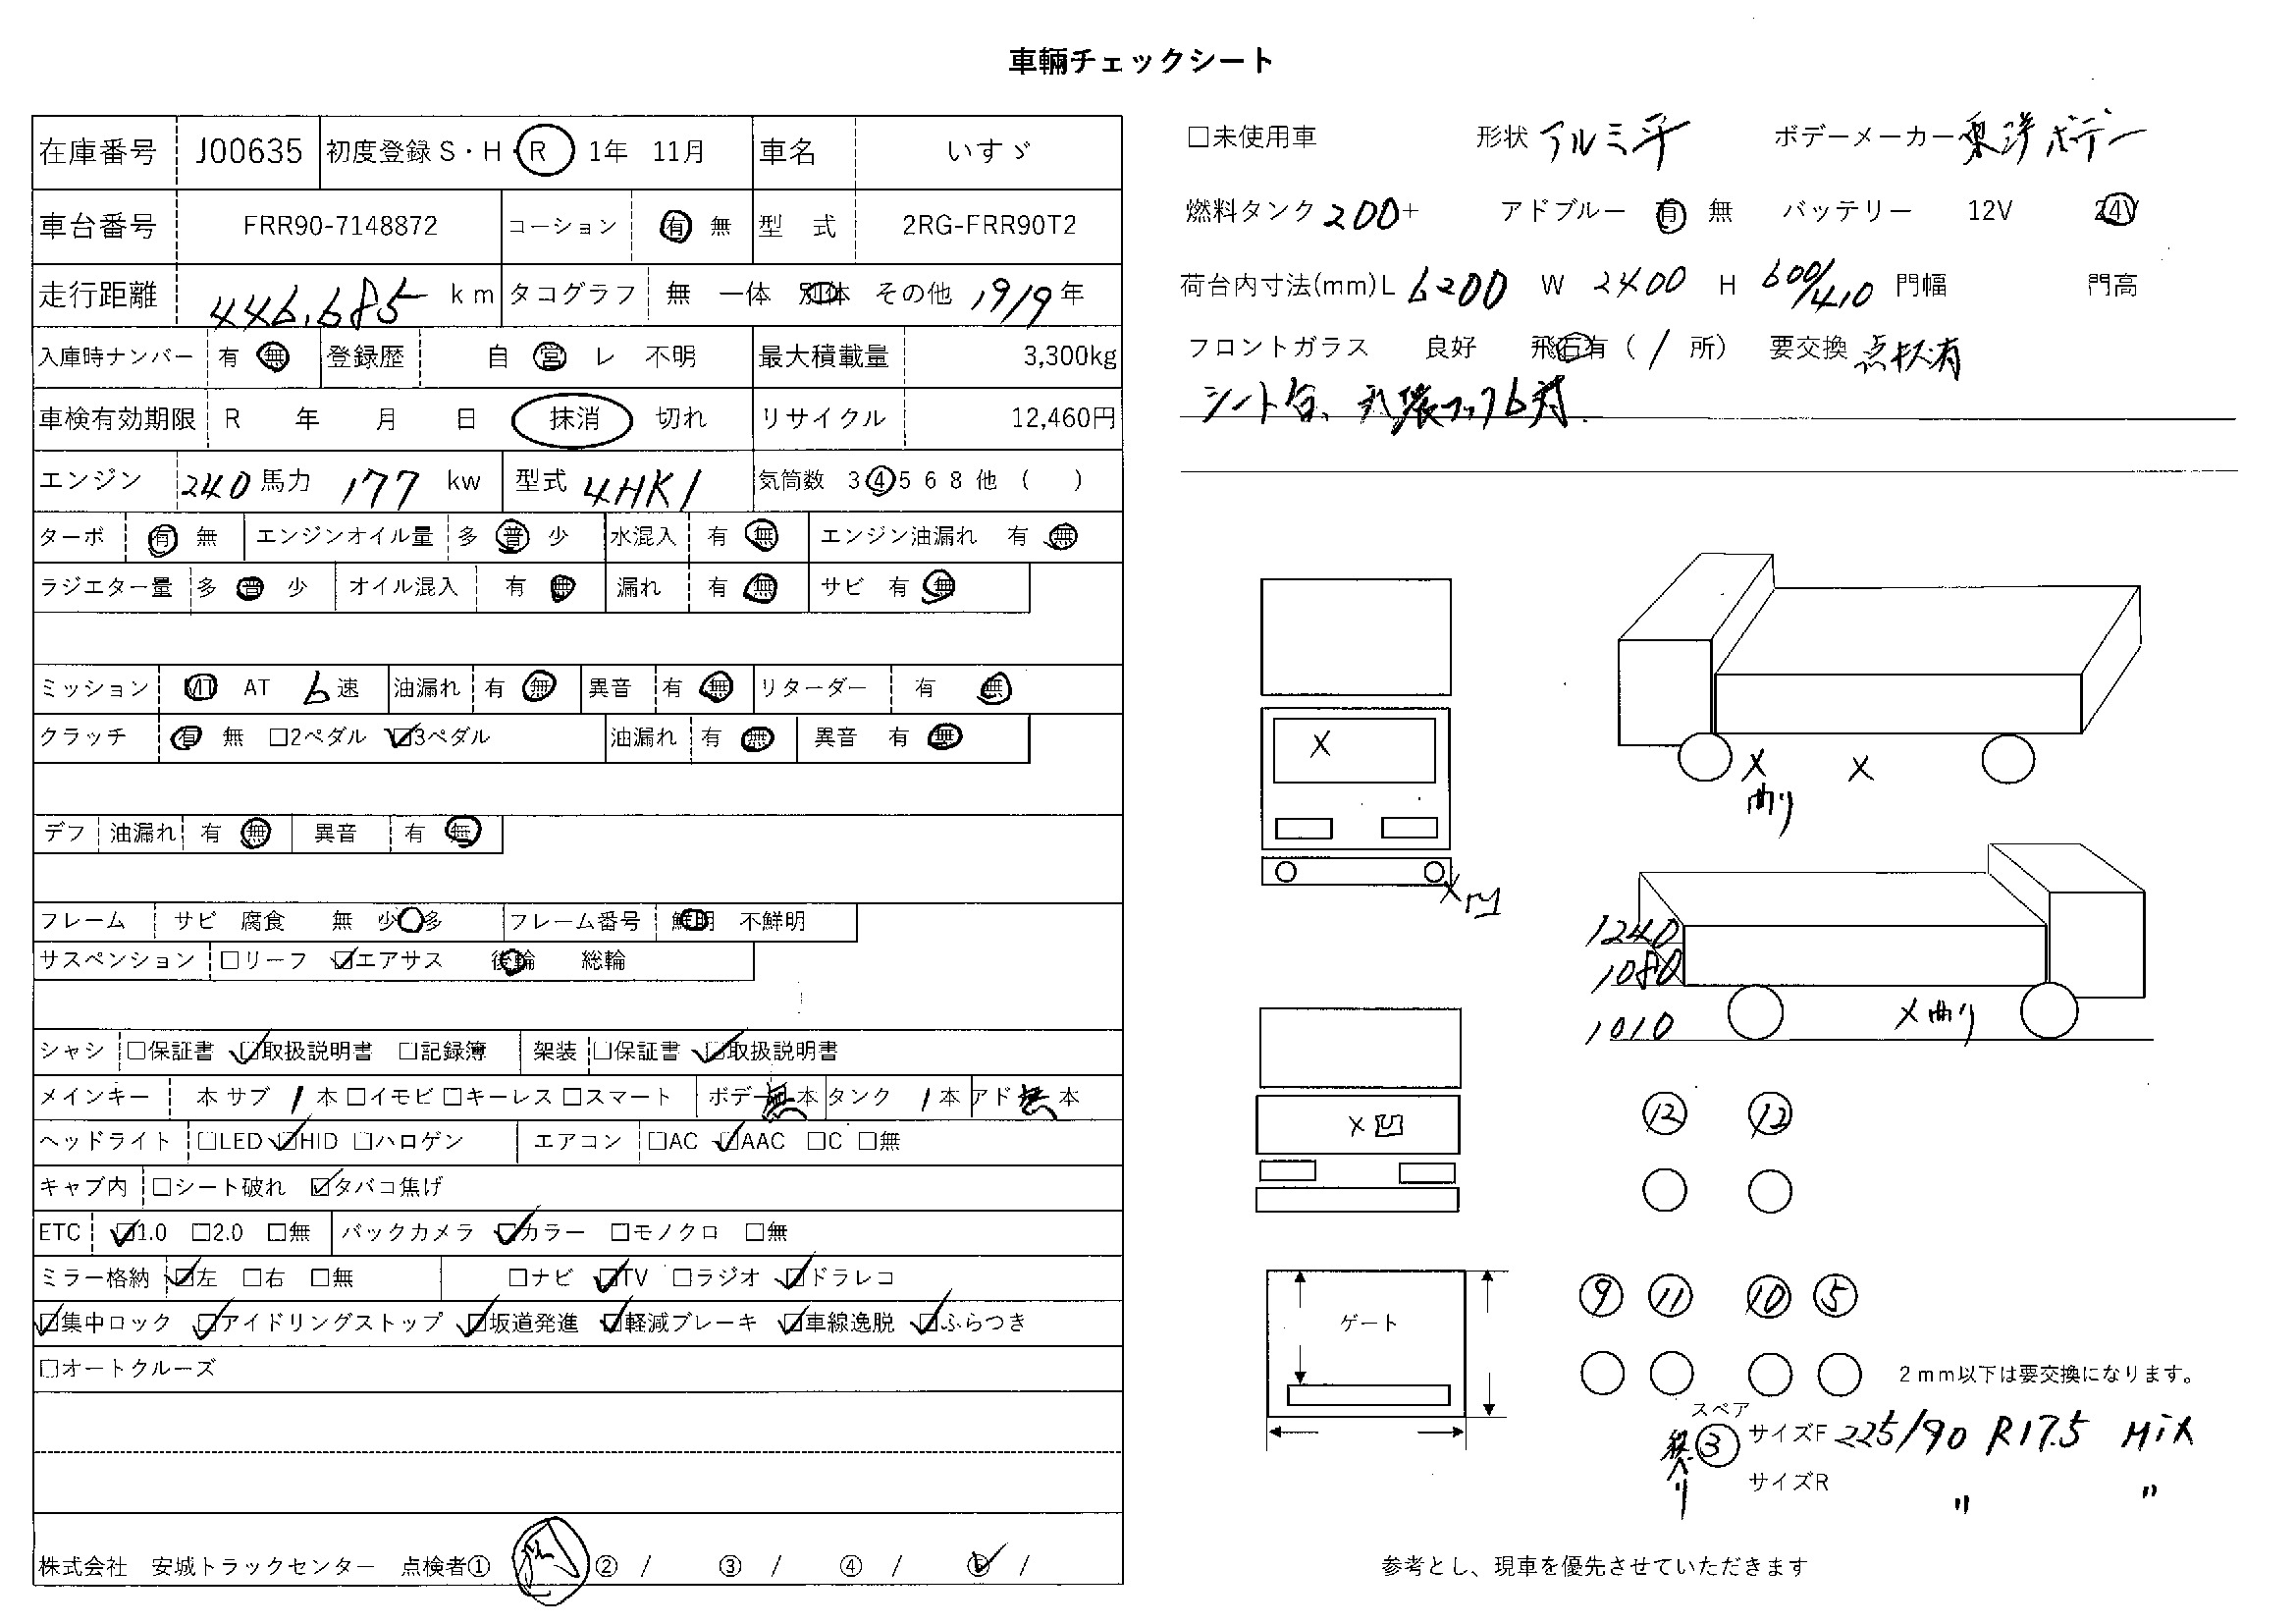 車輛チェックシート
在庫番号 J00635 初度登録 S・H・R 1年 11月 車名 いすゞ
車台番号 FRR90-7148872 コーション 有 無 型 式 2RG-FRR90T2
走行距離 446,685 km タコグラフ 無 一体 別体 その他 1919年
入庫時ナンバー 有 無 登録歴 自 営 レ 不明 最大積載量 3,300kg
車検有効期限 R 年 月 日 抹消 切れ リサイクル 12,460円
エンジン 240馬力 177 kw 型式 4HK1 気筒数 3 4 5 6 8 他 ( )
ターボ 有 無 エンジンオイル量 多 普 少 水混入 有 無 エンジン油漏れ 有 無
ラジエター量 多 普 少 オイル混入 有 無 漏れ 有 無 サビ 有 無
ミッション MT AT 6速 油漏れ 有 無 異音 有 無 リターダー 有 無
クラッチ 有 無 □2ペダル ☑3ペダル 油漏れ 有 無 異音 有 無
デフ 油漏れ 有 無 異音 有 無
フレーム サビ 腐食 無 少 多 フレーム番号 鮮明 不鮮明
サスペンション □リーフ ☑エアサス 後輪 総輪
シャシ □保証書 ☑取扱説明書 □記録簿 架装 □保証書 ☑取扱説明書
メインキー 本 サブ 1本 □イモビ □キーレス □スマート ボデー無本 タンク 1本 アド無本
ヘッドライト □LED ☑HID □ハロゲン エアコン □AC ☑AAC □C □無
キャブ内 □シート破れ ☑タバコ焦げ
ETC ☑1.0 □2.0 □無 バックカメラ ☑カラー □モノクロ □無
ミラー格納 ☑左 □右 □無 □ナビ ☑TV □ラジオ ☑ドラレコ
☑集中ロック ☑アイドリングストップ ☑坂道発進 ☑軽減ブレーキ ☑車線逸脱 ☑ふらつき
□オートクルーズ
株式会社 安城トラックセンター 点検者① ② / ③ / ④ / ⑤ /
□未使用車 形状 アルミ平 ボデーメーカー 東洋ボデー
燃料タンク 200+ アドブルー 有 無 バッテリー 12V 24V
荷台内寸法(mm) L 6200 W 2400 H 600/410 門幅 門高
フロントガラス 良好 飛石有 ( 1 所) 要交換 点キズ有
シート台、 フック6対
X
X X
曲り
X 凹
1240
1080
1010
X 曲り
X 凹
⑫ ⑫
⑨ ⑪ ⑩ ⑤
ゲート
2mm以下は要交換になります。
スペア
③ サイズF 225/90 R17.5 MiX
ヘリ サイズR 〃 〃
参考とし、現車を優先させていただきます